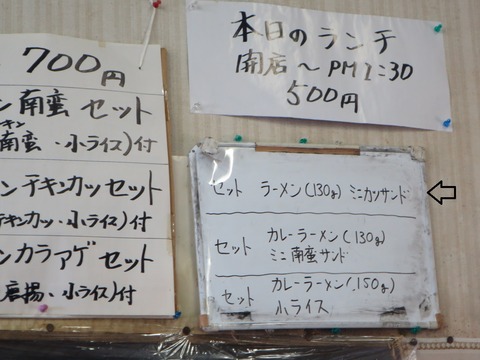 700円
ン南蛮 セット
南蛮・小ライス)付
ンチキンカツセット
チキンカツ・小ライス)付
ンカラアゲセット
唐揚・小ライス)付
本日のランチ
開店〜PM1:30
500円
セット ラーメン(130g) ミニカツサンド
セット カレーラーメン(130g)
ミニ南蛮サンド
セット カレーラーメン(150g)
小ライス